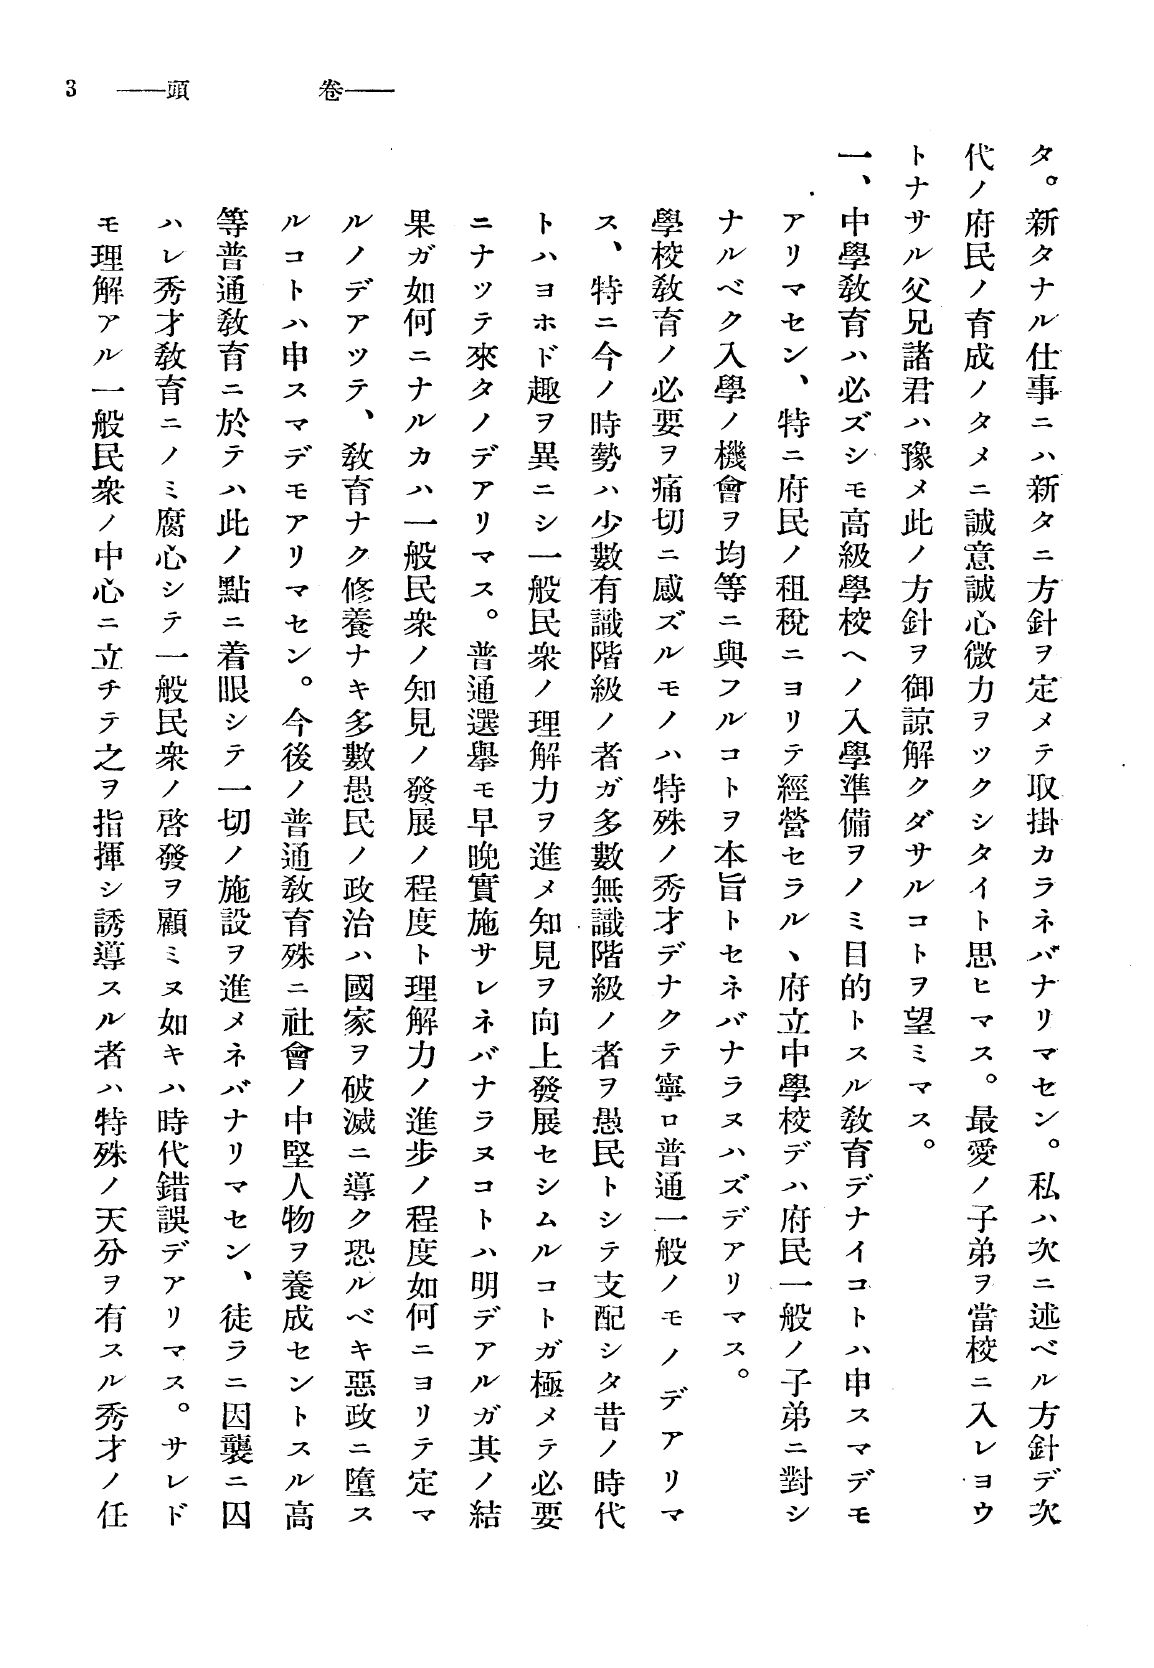 3 ――頭 卷――
タ。新タナル仕事ニハ新タニ方針ヲ定メテ取掛カラネバナリマセン。私ハ次ニ述ベル方針デ次
代ノ府民ノ育成ノタメニ誠意誠心微力ヲツクシタイト思ヒマス。最愛ノ子弟ヲ當校ニ入レヨウ
トナサル父兄諸君ハ豫メ此ノ方針ヲ御諒解クダサルコトヲ望ミマス。
一、中學敎育ハ必ズシモ高級學校ヘノ入學準備ヲノミ目的トスル敎育デナイコトハ申スマデモ
アリマセン、特ニ府民ノ租稅ニヨリテ經營セラルヽ府立中學校デハ府民一般ノ子弟ニ對シ
ナルベク入學ノ機會ヲ均等ニ與フルコトヲ本旨トセネバナラヌハズデアリマス。
學校敎育ノ必要ヲ痛切ニ感ズルモノハ特殊ノ秀才デナクテ寧ロ普通一般ノモノデアリマ
ス、特ニ今ノ時勢ハ少數有識階級ノ者ガ多數無識階級ノ者ヲ愚民トシテ支配シタ昔ノ時代
トハヨホド趣ヲ異ニシ一般民衆ノ理解力ヲ進メ知見ヲ向上發展セシムルコトガ極メテ必要
ニナツテ來タノデアリマス。普通選擧モ早晩實施サレネバナラヌコトハ明デアルガ其ノ結
果ガ如何ニナルカハ一般民衆ノ知見ノ發展ノ程度ト理解力ノ進步ノ程度如何ニヨリテ定マ
ルノデアツテ、敎育ナク修養ナキ多數愚民ノ政治ハ國家ヲ破滅ニ導ク恐ルベキ惡政ニ墮ス
ルコトハ申スマデモアリマセン。今後ノ普通敎育殊ニ社會ノ中堅人物ヲ養成セントスル高
等普通敎育ニ於テハ此ノ點ニ着眼シテ一切ノ施設ヲ進メネバナリマセン、徒ラニ因襲ニ囚
ハレ秀才敎育ニノミ腐心シテ一般民衆ノ啓發ヲ顧ミヌ如キハ時代錯誤デアリマス。サレド
モ理解アル一般民衆ノ中心ニ立チテ之ヲ指揮シ誘導スル者ハ特殊ノ天分ヲ有スル秀才ノ任